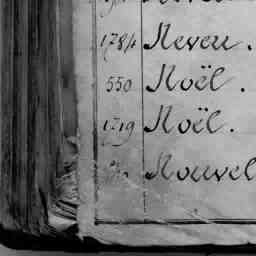 1784 Neveu.
550 Noël.
1719 Noël.
Nouvel